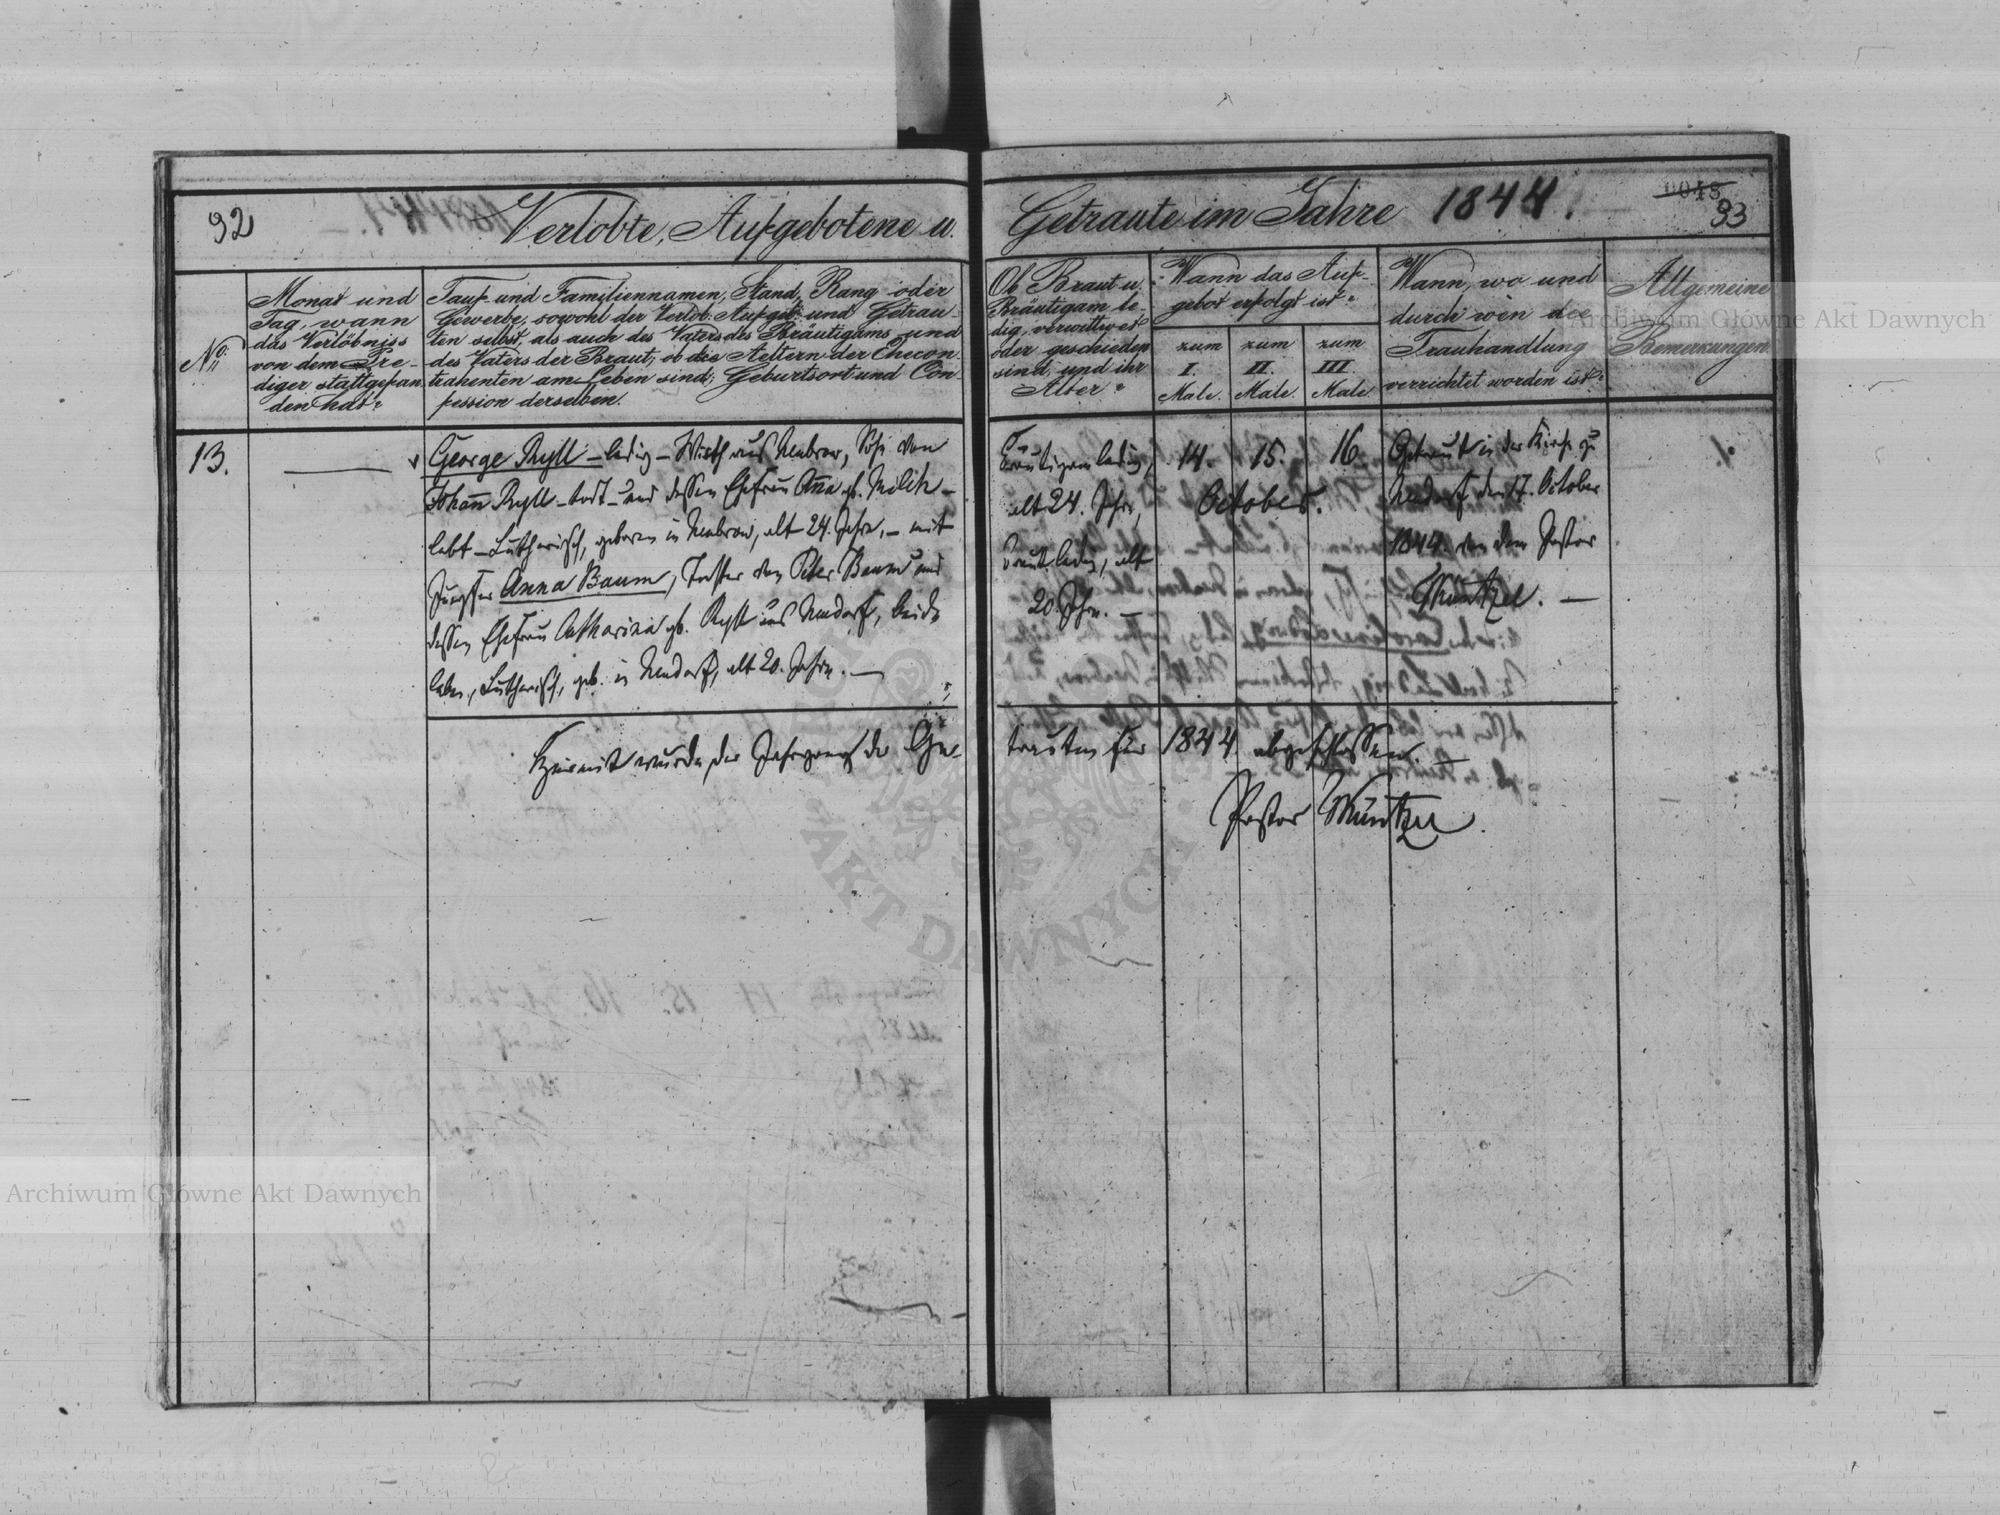 32
Verlobte, Aufgebotene u.
Getraute im Jahre 1844.
0048
33
No.
Monat und
Tag, wann
das Verlöbniss
von dem Pre-
diger stattgefun
den hat?
Tauf- und Familiennamen, Stand, Rang oder
Gewerbe, sowohl der Verlob. Aufgeb. und Getrau-
ten selbst, als auch des Vaters des Bräutigams und
des Vaters der Braut; ob die Aeltern der Ehecon-
trahenten am Leben sind; Geburtsort und Con-
fession derselben.
Ob Braut u.
Bräutigam le-
dig, verwittwet
oder geschieden
sind, und ihr
Alter?
Wann das Auf-
gebot erfolgt ist?
zum I. Male.
zum II. Male.
zum III. Male.
Wann, wo und
durch wen die
Trauhandlung
verrichtet worden ist?
Allgemeine
Bemerkungen.
13.
George Ryll – ledig – Wirth aus Neubrow, Sohn von
Johann Ryll – todt – und dessen Ehefrau Anna gb. Milch –
lebt – Lutherisch, geboren in Neubrow, alt 24. Jahre, – mit
Jungfer Anna Baum, Tochter von Peter Baum und
dessen Ehefrau Catharina gb. Ryll aus Neudorf, beide
leben, Lutherisch, geb. in Neudorf, alt 20. Jahre. —
Bräutigam ledig,
alt 24. Jahre,
Braut ledig, alt
20 Jahre. —
14. 15. 16
October.
Getraut in der Kirche zu
Neudorf den 17. October
1844. von dem Pastor
Müntzel. —
Hiermit wurde der Jahrgang der Ge-
trauten für 1844. abgeschlossen. —
Pastor Müntzel.
Archiwum Główne Akt Dawnych
Archiwum Główne Akt Dawnych
AKT DAWNYCH